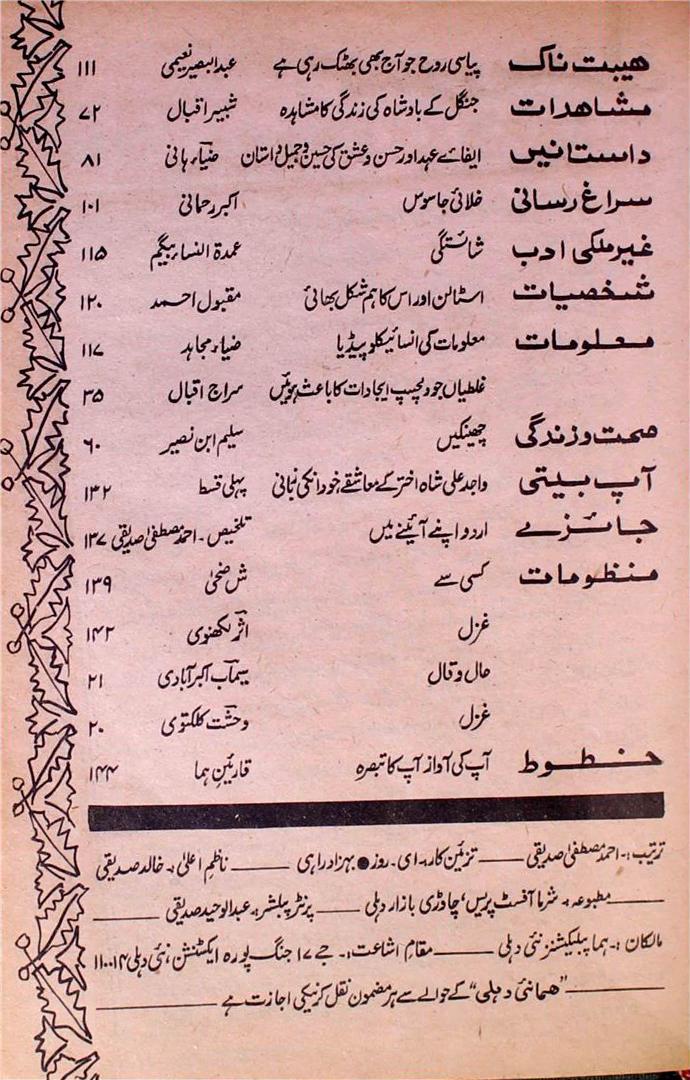 ھیبت ناک پیاسی روح جو آج بھی بھٹک رہی ہے عبدالبصیر نعیمی ۱۱۱
مشاھدات جنگل کے بادشاہ کی زندگی کا مشاہدہ شبیر اقبال ۷۲
داستانیں ایفائے عہد اور حسن وعشق کی حسین وجمیل داستان ضیاء ہانی ۸۱
سراغ رسانی خلائی جاسوس اکبر رحمانی ۱۰۱
غیر ملکی ادب شائستگی عمدۃ النساء بیگم ۱۱۵
شخصیات اسٹالن اور اس کا ہم شکل بھائی مقبول احمد ۱۲۰
معلومات معلومات کی انسائیکلوپیڈیا ضیاء مجاہد ۱۱۷
غلطیاں جو دلچسپ ایجادات کا باعث ہوئیں سراج اقبال ۳۵
صحت و زندگی چھینکیں سلیم ابن نصیر ۶۰
آپ بیتی واجد علی شاہ اختر کے معاشقے خود انکی زبانی پہلی قسط ۱۳۲
جائزے اردو اپنے آئینے میں تلخیص ۔ احمد مصطفیٰ صدیقی ۱۳۷
منظومات کسی سے ش ضحیٰ ۱۳۹
غزل اثر لکھنوی ۱۴۲
حال و قال سیماب اکبرآبادی ۲۱
غزل وحشت کلکتوی ۲۰
خطوط آپ کی آواز آپ کا تبصرہ قارئین ہما ۱۴۴
ترتیب :۔ احمد مصطفیٰ صدیقی —— تزئین کار :۔ ای ۔ روز ● بہزاد راہی —— ناظم اعلیٰ :۔ خالد صدیقی
—— مطبوعہ :۔ شرما آفسٹ پریس، چاوڑی بازار دہلی —— پرنٹر پبلشر :۔ عبدالوحید صدیقی ——
مالکان :۔ ہما پبلیکیشنز نئی دہلی —— مقام اشاعت :۔ جے ۱۷ جنگ پورہ ایکسٹنشن، نئی دہلی ۱۱۰۰۱۴
—— "ھما نئی دہلی" کے حوالے سے ہر مضمون نقل کرنیکی اجازت ہے ——